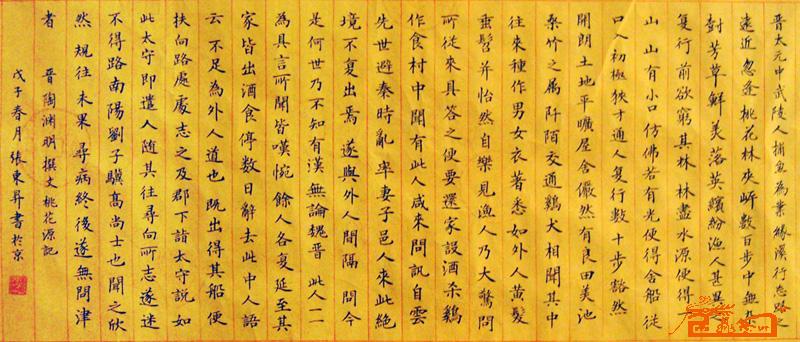 晉太元中武陵人捕魚為業緣溪行忘路之
遠近忽逢桃花林夾岸數百步中無雜
對芳草鮮美落英繽紛漁人甚異之
复行前欲窮其林林盡水源便得一
山山有小口仿佛若有光便得舍船從
口入初極狹才通人复行數十步豁然
開朗土地平曠屋舍儼然有良田美池
桑竹之屬阡陌交通鷄犬相聞其中
往來種作男女衣著悉如外人黄髮
垂髫并怡然自樂見漁人乃大驚問
所從來具答之便要還家設酒殺鷄
作食村中聞有此人咸來問訊自雲
先世避秦時亂率妻子邑人來此絶
境不复出焉遂與外人間隔問今
是何世乃不知有漢無論魏晉此人一一
為具言所聞皆嘆惋餘人各复延至其
家皆出酒食停數日辭去此中人語
云不足為外人道也既出得其船便
扶向路處處志之及郡下詣太守説如
此太守即遣人隨其往尋向所志遂迷
不得路南陽劉子驥高尚士也聞之欣
然規往未果尋病終後遂無問津
者 晉陶淵明撰文桃花源記
戊子春月張東昇書於京